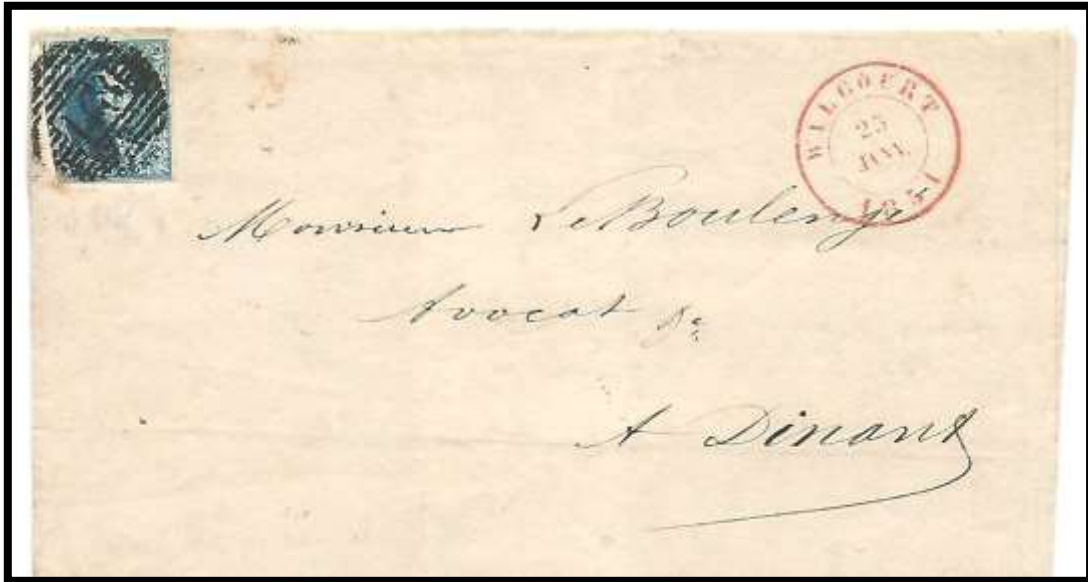 WALCOURT
25
JANV.
1851
Monsieur LeBoulengé
Avocat
A Dinant